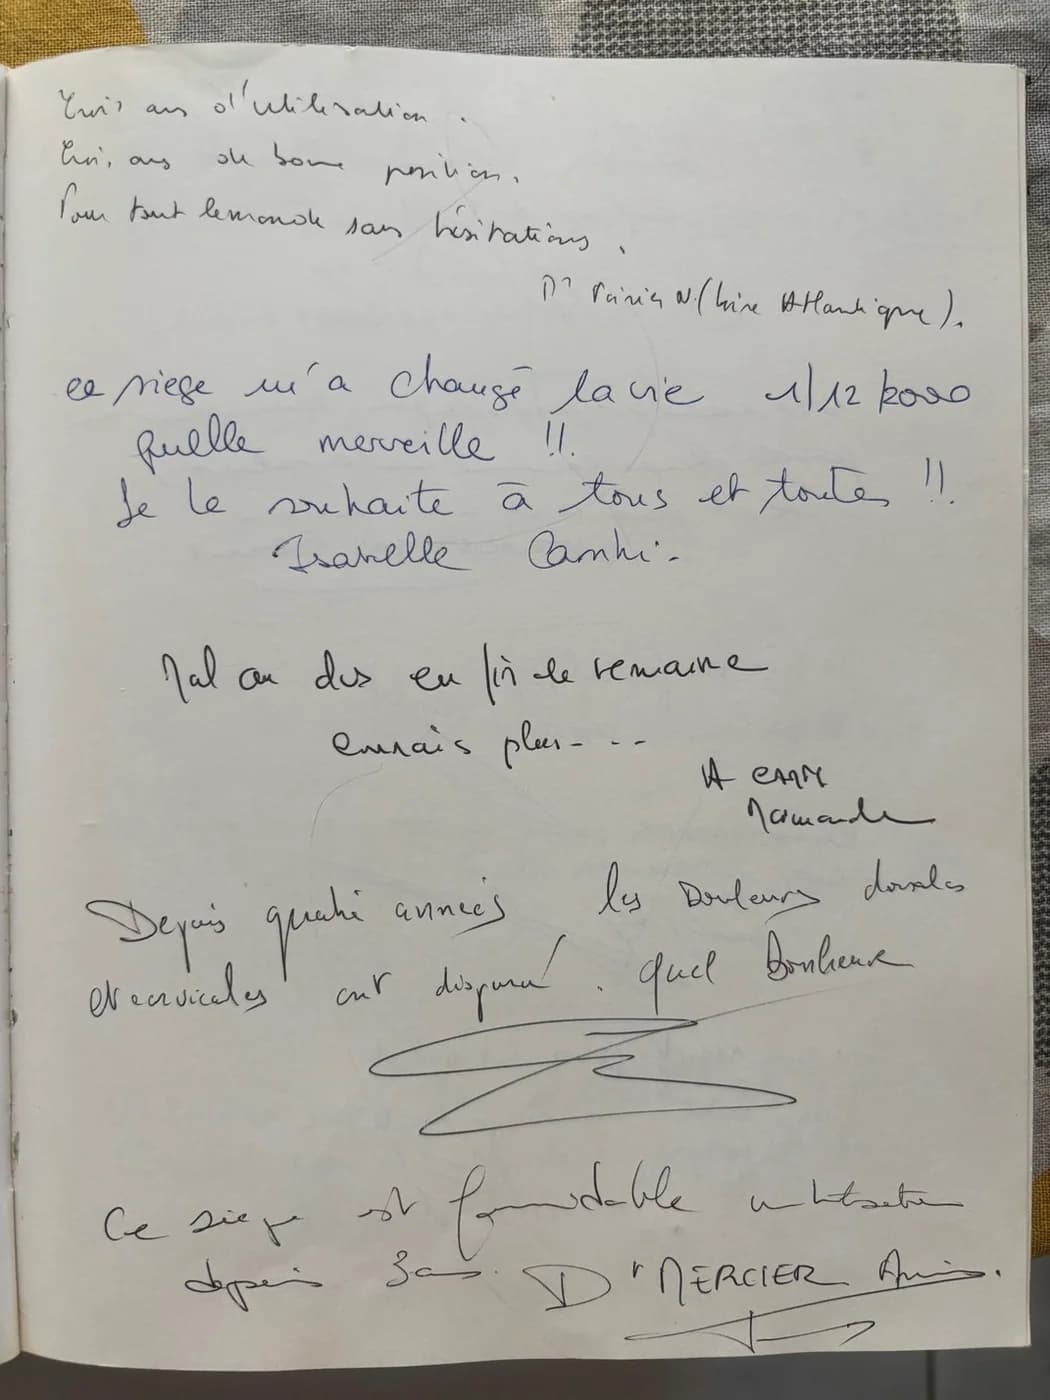 Trois ans d'utilisation.
Trois ans de bonne position.
Pour tout le monde sans hésitations.
Dr N. (Loire Atlantique).
ce siege m'a changé la vie 1/12/2000
quelle merveille !!
Je le souhaite à tous et toutes !!
Isabelle
Mal au dos en fin de semaine
connais plus - - -
Depuis quatre années les Douleurs dorsales
et cervicales ont disparu ! quel Bonheur
Ce siege est formidable utilisation
depuis 3 ans. Dr MERCIER